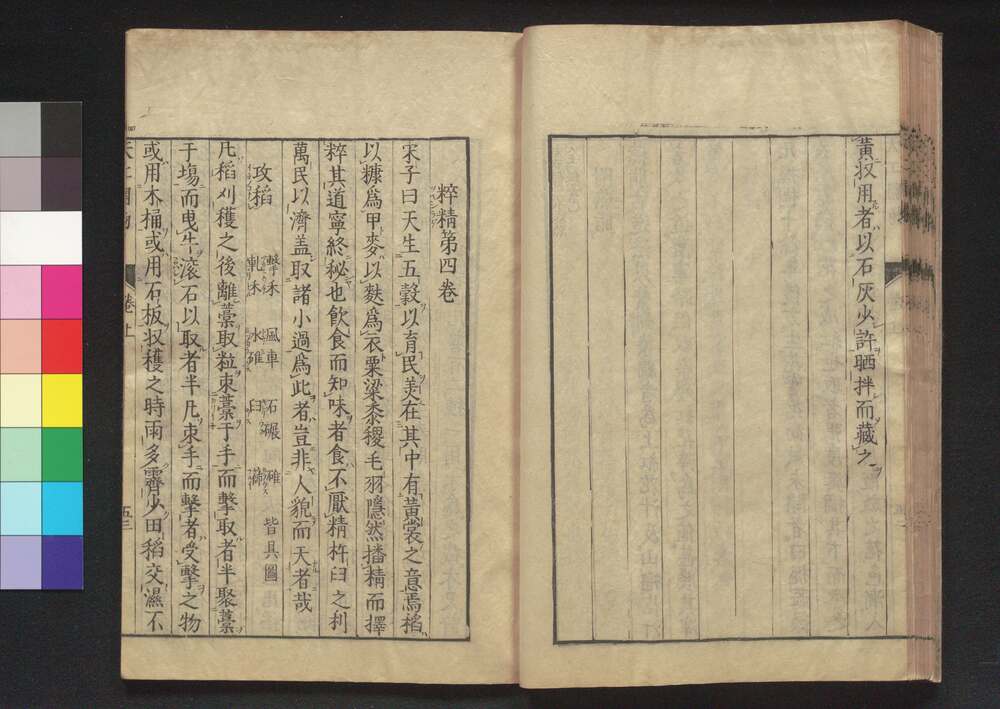 黃収用者以石灰少許晒拌而藏之
粹精第四卷
宋子曰天生五穀以育民美在其中有黃裳之意焉稻
以糠爲甲麥以麩爲衣粟粱黍稷毛羽隱然播精而擇
粹其道寧終秘也飲食而知味者食不厭精杵臼之利
萬民以濟盖取諸小過爲此者豈非人貌而天者哉
攻稻 擊禾 軋禾 風車 水碓 石碾 臼 碓 篩 皆具圖
凡稻刈穫之後離藁取粒束藁于手而擊取者半聚藁
于塲而曳牛滾石以取者半凡束手而擊者受擊之物
或用木桶或用石板収穫之時雨多霽少田稻交濕不
天工開物 卷上 五三